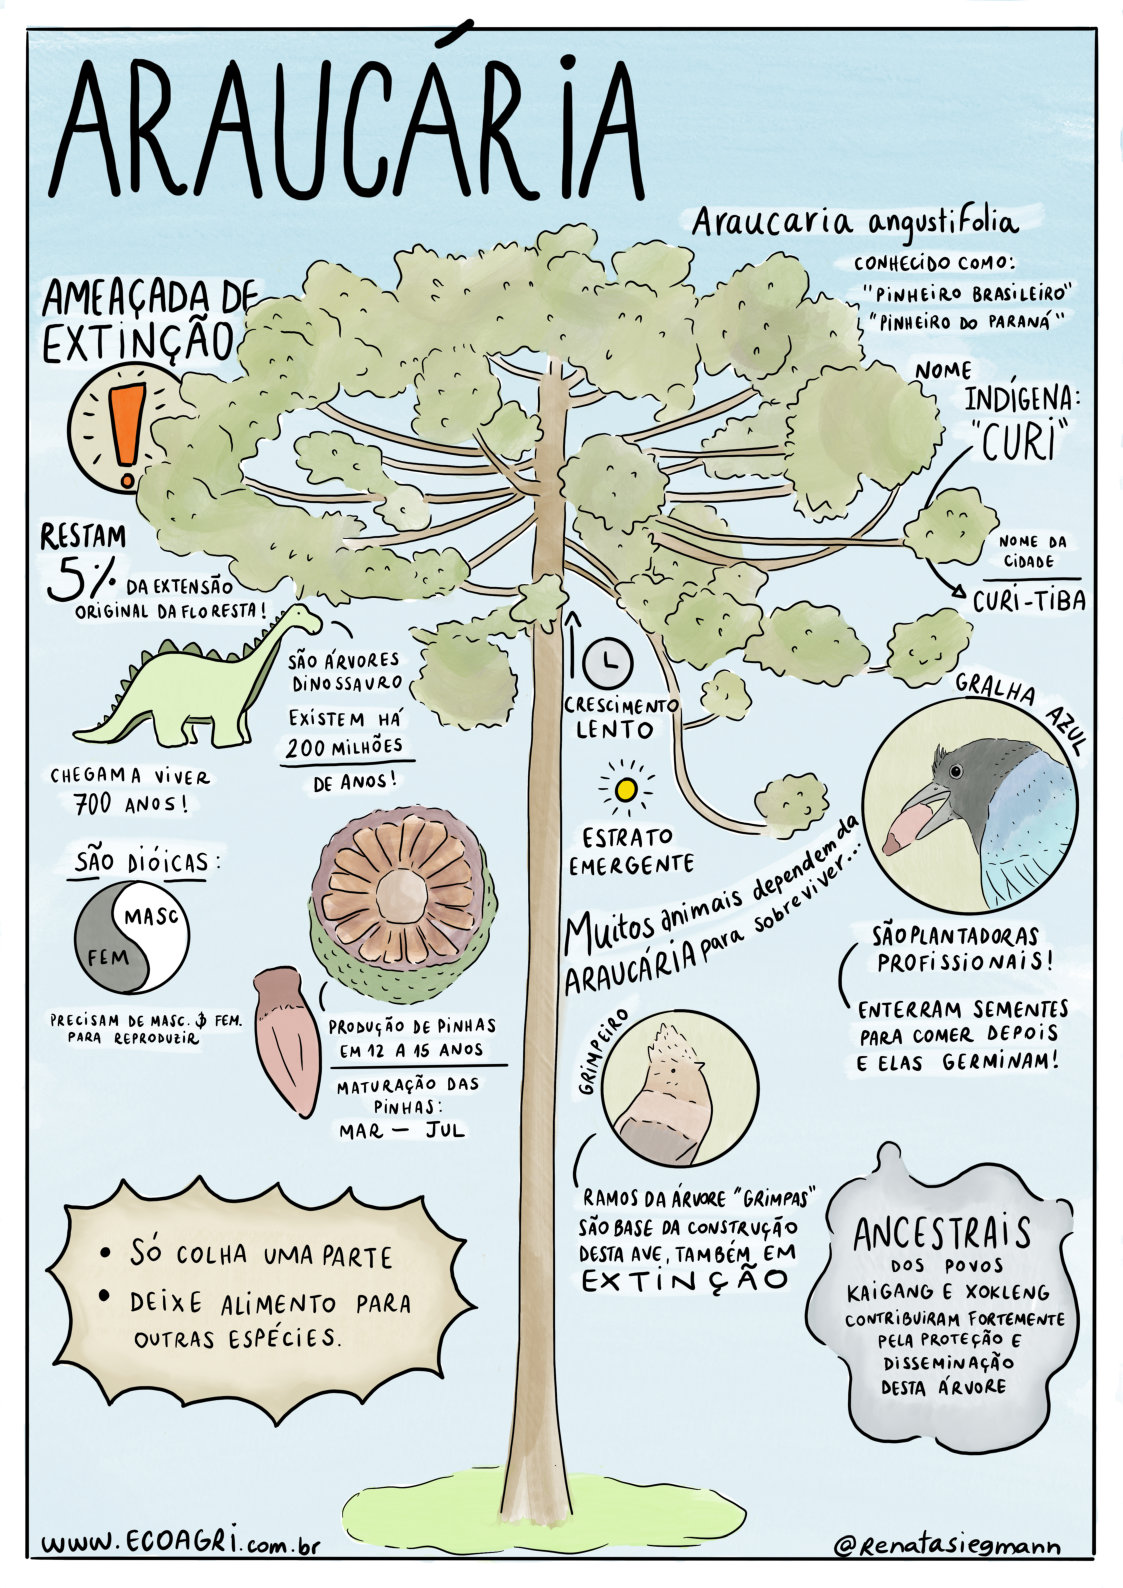 ARAUCÁRIA
Araucaria angustifolia
CONHECIDO COMO:
"PINHEIRO BRASILEIRO"
"PINHEIRO DO PARANÁ"
AMEAÇADA DE
EXTINÇÃO
!
NOME
INDÍGENA:
"CURI"
NOME DA
CIDADE
CURI-TIBA
RESTAM
5% DA EXTENSÃO
ORIGINAL DA FLORESTA!
SÃO ÁRVORES
DINOSSAURO
EXISTEM HÁ
200 MILHÕES
DE ANOS!
CHEGAM A VIVER
700 ANOS!
CRESCIMENTO
LENTO
ESTRATO
EMERGENTE
GRALHA AZUL
Muitos animais dependem da
ARAUCÁRIA para sobreviver...
SÃO PLANTADORAS
PROFISSIONAIS!
ENTERRAM SEMENTES
PARA COMER DEPOIS
E ELAS GERMINAM!
SÃO DIÓICAS:
MASC
FEM
PRECISAM DE MASC. & FEM.
PARA REPRODUZIR
PRODUÇÃO DE PINHAS
EM 12 A 15 ANOS
MATURAÇÃO DAS
PINHAS:
MAR – JUL
GRIMPEIRO
RAMOS DA ÁRVORE "GRIMPAS"
SÃO BASE DA CONSTRUÇÃO
DESTA AVE, TAMBÉM EM
EXTINÇÃO
• SÓ COLHA UMA PARTE
• DEIXE ALIMENTO PARA
OUTRAS ESPÉCIES.
ANCESTRAIS
DOS POVOS
KAIGANG E XOKLENG
CONTRIBUIRAM FORTEMENTE
PELA PROTEÇÃO E
DISSEMINAÇÃO
DESTA ÁRVORE
www.ECOAGRI.com.br
@Renatasiegmann